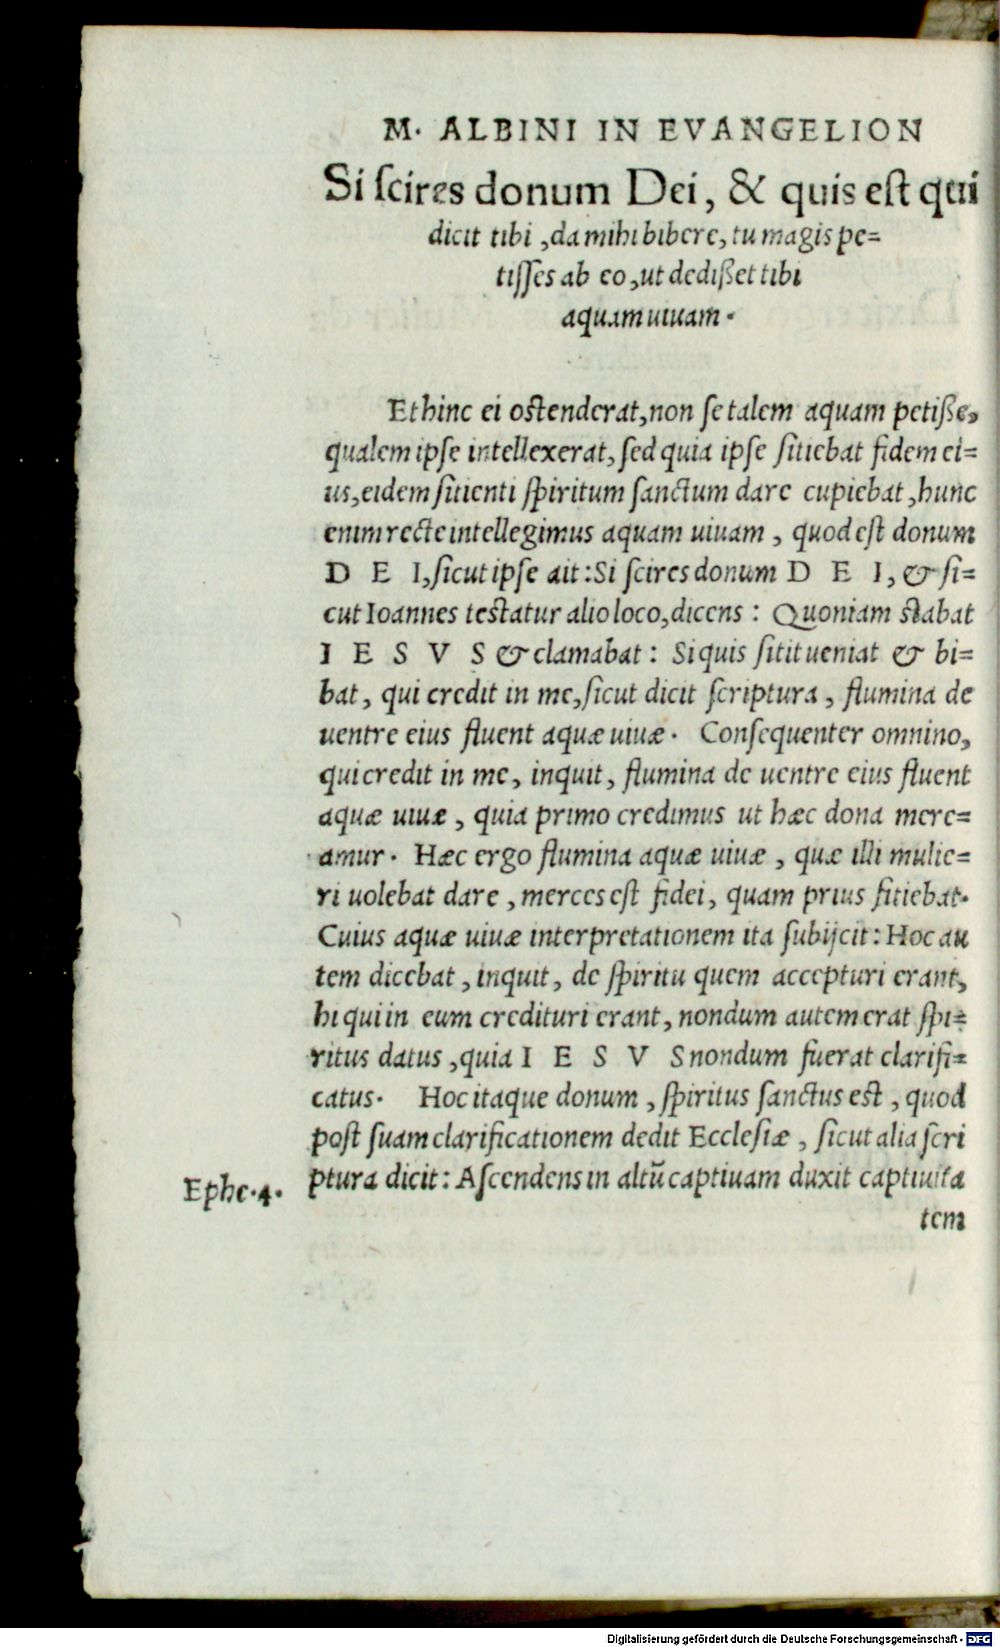 M. ALBINI IN EVANGELION
Si ſcires donum Dei, & quis eſt qui
dicit tibi, da mihi bibere, tu magis pe=
tiſſes ab eo, ut dedißet tibi
aquam uiuam.
Et hinc ei oſtenderat, non ſe talem aquam petiße,
qualem ipſe intellexerat, ſed quia ipſe ſitiebat fidem ei=
us, eidem ſitienti ſpiritum ſanctum dare cupiebat, hunc
enim recte intellegimus aquam uiuam, quod eſt donum
D E I, ſicut ipſe ait: Si ſcires donum D E I, & ſi=
cut Ioannes teſtatur alio loco, dicens: Quoniam ſtabat
I E S V S & clamabat: Si quis ſitit ueniat & bi=
bat, qui credit in me, ſicut dicit ſcriptura, flumina de
uentre eius fluent aquæ uiuæ. Conſequenter omnino,
qui credit in me, inquit, flumina de uentre eius fluent
aquæ uiuæ, quia primo credimus ut hæc dona mere=
amur. Hæc ergo flumina aquæ uiuæ, quæ illi mulie=
ri uolebat dare, merces eſt fidei, quam prius ſitiebat.
Cuius aquæ uiuæ interpretationem ita ſubijcit: Hoc au
tem dicebat, inquit, de ſpiritu quem accepturi erant,
hi qui in eum credituri erant, nondum autem erat ſpi=
ritus datus, quia I E S V S nondum fuerat clarifi=
catus. Hoc itaque donum, ſpiritus ſanctus eſt, quod
poſt ſuam clarificationem dedit Eccleſiæ, ſicut alia ſcri
Ephe.4. ptura dicit: Aſcendens in altū captiuam duxit captiuita
tem
Digitalisierung gefördert durch die Deutsche Forschungsgemeinschaft - DFG